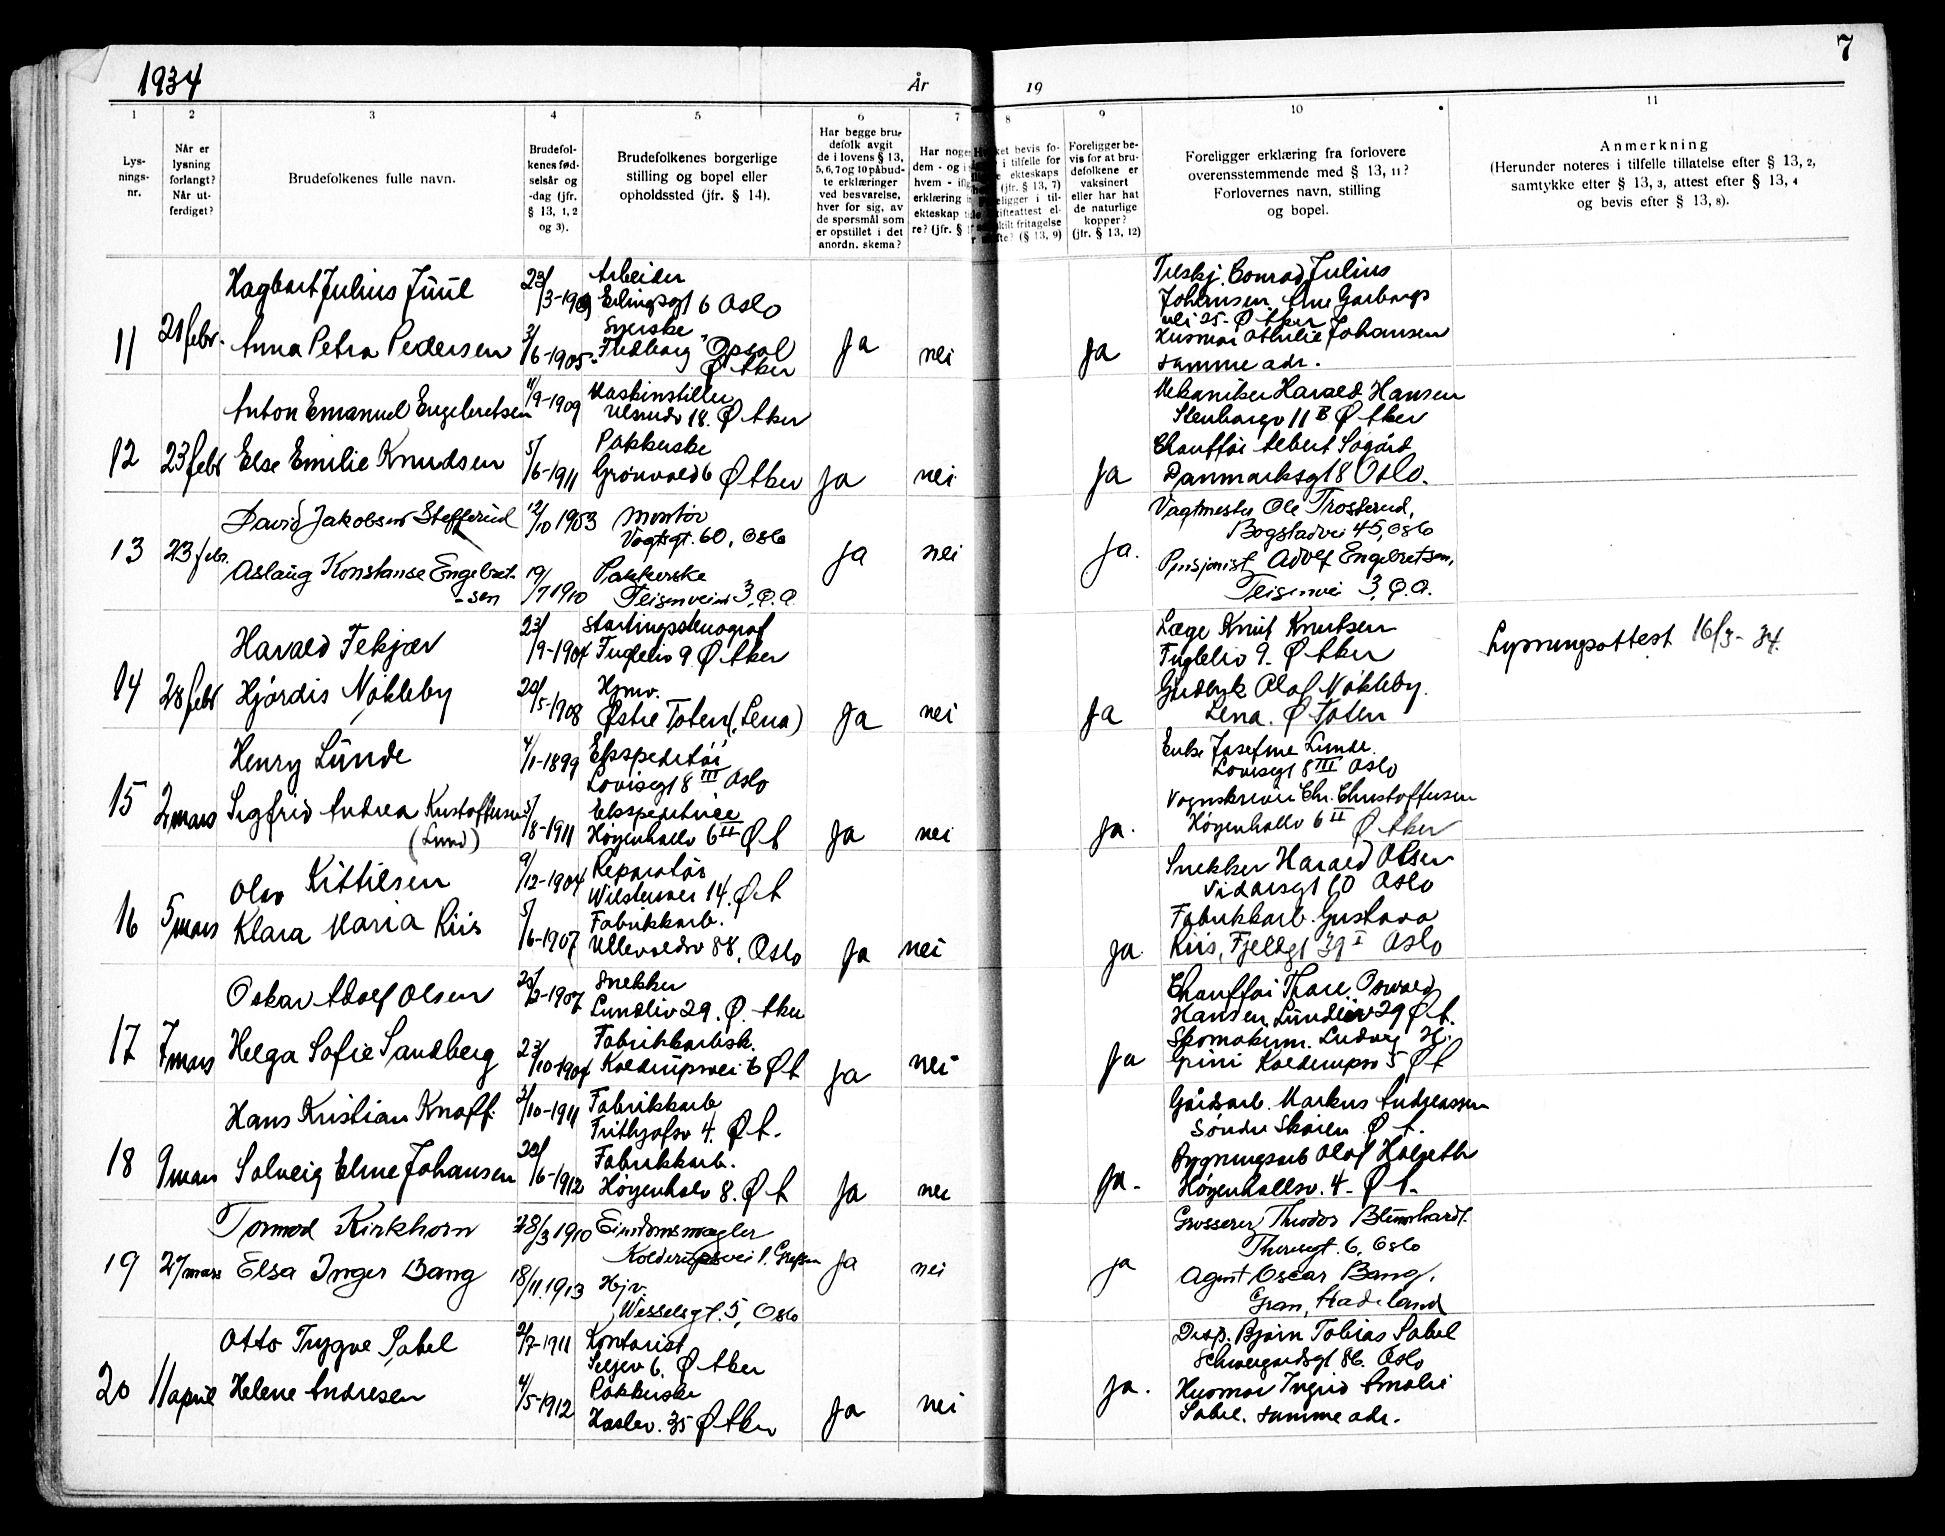 1934 År 19 7
1 2 3 4 5 6 7 8 9 10 11
Lys-
nings-
nr.
Når er
lysning
forlangt?
Når ut-
ferdiget?
Brudefolkenes fulle navn.
Brudefol-
kenes fød-
selsår og
-dag (jfr.
§ 13, 1, 2
og 3).
Brudefolkenes borgerlige
stilling og bopel eller
opholdssted (jfr. § 14).
Har begge bru-
defolk avgit
de i lovens § 13,
5, 6, 7 og 10 påbud-
te erklæringer
ved besvarelse,
hver for sig, av
de spørsmål som
er opstillet i det
anordn. skema?
Har noge
dem - og i
hvem - ifl
erklæring
ekteskap
re? (jfr. § 1
ket bevis fo-
i tilfelle for
ekteskaps
(jfr. § 13, 7)
eligger i til-
ifteattest el-
kilt fritagelse
fte? (§ 13, 9)
Foreligger be-
vis for at bru-
defolkene er
vaksinert
eller har hat
de naturlige
kopper?
(jfr. § 13, 12)
Foreligger erklæring fra forlovere
overensstemmende med § 13, 11?
Forlovernes navn, stilling
og bopel.
Anmerkning
(Herunder noteres i tilfelle tillatelse efter § 13, 2,
samtykke efter § 13, 3, attest efter § 13, 4
og bevis efter § 13, 8).
11 21 febr.
Hagbart Julius Juul
23/3-190
Arbeider
Erlingsgt 6 Oslo
Anna Petra Pedersen
/6-1905
Syerske
Fredborg Opsal
Ø Aker
Ja nei Ja
Conrad Julius
Johansen Arne Garborgs
vei 25 - Ø Aker
Husmor Othilie Johansen
samme adr.
12 23 febr
Anton Emanuel Engebretsen
/9-1909
Maskinstiller
18. Ø Aker
Else Emilie Knudsen
5/6-1911
Pakkerske
Grønvold 6 Ø Aker
Ja nei Ja
Mekaniker Harald Hansen
Stenborgv 11 B Ø Aker
Chauffør Albert Sogård
Danmarksgt 8 Oslo.
13 23 febr.
David Jakobsen Stefferud
12/10 1903
Montør
Vogtsgt. 60, Oslo
Aslaug Konstanse Engebret-
-sen
19/7 1910
Pakkerske
Teisenveien 3, Ø.A.
Ja nei Ja.
Vagtmester Ole Trosterud,
Bogstadvei 45, Oslo
Pensjonist Adolf Engebretsen,
Teisenvei 3, Ø.A.
14 28 febr
Harald Tekjær
23/9-1904
Stortingsstenograf
Fuglelio 9. Ø Aker
Hjördis Nökleby
20/5-1908
Hjmv.
Østre Toten (Lena)
Ja nei Ja
Læge Knut Knutsen
Fuglelio 9. Ø Aker
Gårdbruk Olaf Nökleby.
Lena. Ø Toten
Lysningsattest 16/3-34.
15 2 mars
Henry Lunde
4/1-1899
Ekspeditør
Lovisegt 8 III Oslo
Sigfrid Andrea Kristoffersen
(Lund)
5/8-1911
Ekspeditrice
Høyenhallv 6 II Ø A
Ja nei Ja.
Enke Josefine Lunde.
Lovisegt 8 III Oslo
Vognskriver Chr. Christoffersen
Høyenhallv 6 II Ø Aker
16 5 mars
Olav Kittilsen
9/12-1904
Reparatør
14. Ø A
Klara Maria Riis
5/6-1907
Fabrikkarb.
Ullevoldsv 88, Oslo
Ja nei Ja
Snekker Harald Olsen
Vidarsgt 10 Oslo
Fabrikkarb. Gustava
Riis, Fjellgt 39 I Oslo
17 7 mars
Oskar Adolf Olsen
/2-1907
Snekker
Lundliv 29. Ø. Aker
Helga Sofie Sandberg
23/10-1904
Fabrikkarbsk.
Kolderupsvei 6 Ø A
Ja nei Ja
Chauffør Thore Oswald
Hansen Lundliv 29 Ø A.
Skomakerm. Ludvig H.
Grini Kolderupsv 5 Ø A
18 9 mars
Hans Kristian Knoff.
/10-1911
Fabrikkarb
Frithjofsv 4. Ø A.
Solveig Eline Johansen
20/6-1912
Fabrikkarb.
Høyenhalv 8. Ø A
Ja nei Ja.
Gårdsarb. Markus Andreassen
Søndre Skøien Ø A.
Bygningsarb Olaf Holseth
Høyenhallsv. 4. Ø A.
19 27 mars
Tormod Kirkhorn
28/3 1910
Eiendomsmægler
Kolderupsvei 1. Grefsen
Elsa Inger Bang
18/11.1913
Hjv.
Wesselsgt. 5, Oslo
Ja nei ja
Grosserer Theodor
Theresgt. 6, Oslo
Agent Oscar Bang,
Gran, Hadeland
20 11 april
Otto Trygve Sabel
2/7-1911
Kontorist
Seljev 6. Ø Aker
Helene Andresen
4/5-1912
Pakkerske
Haslev. 35 Ø Aker
Ja nei Ja.
Disp. Bjørn Tobias Sabel
Schweigaardsgt 86. Oslo
Husmor Ingrid Amalie
Sabel. samme adr.